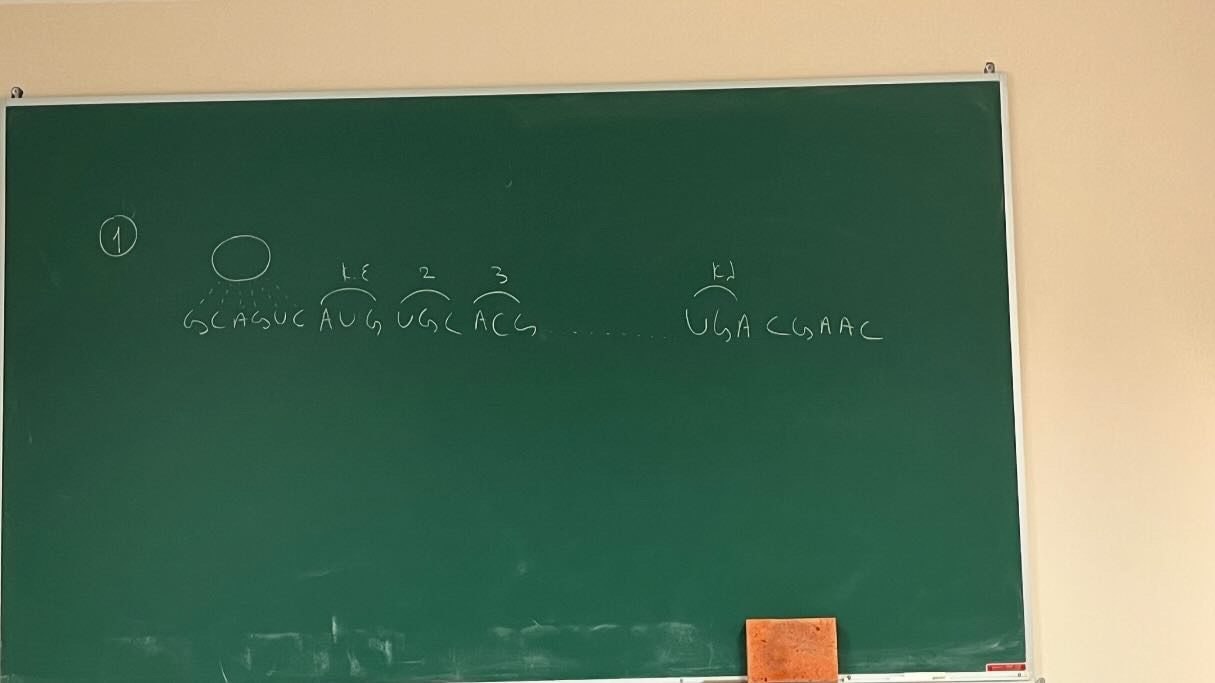 1
κ.ε 2 3 κλ
GCAGUC AUG UGC ACG ........... UGA CGAAC